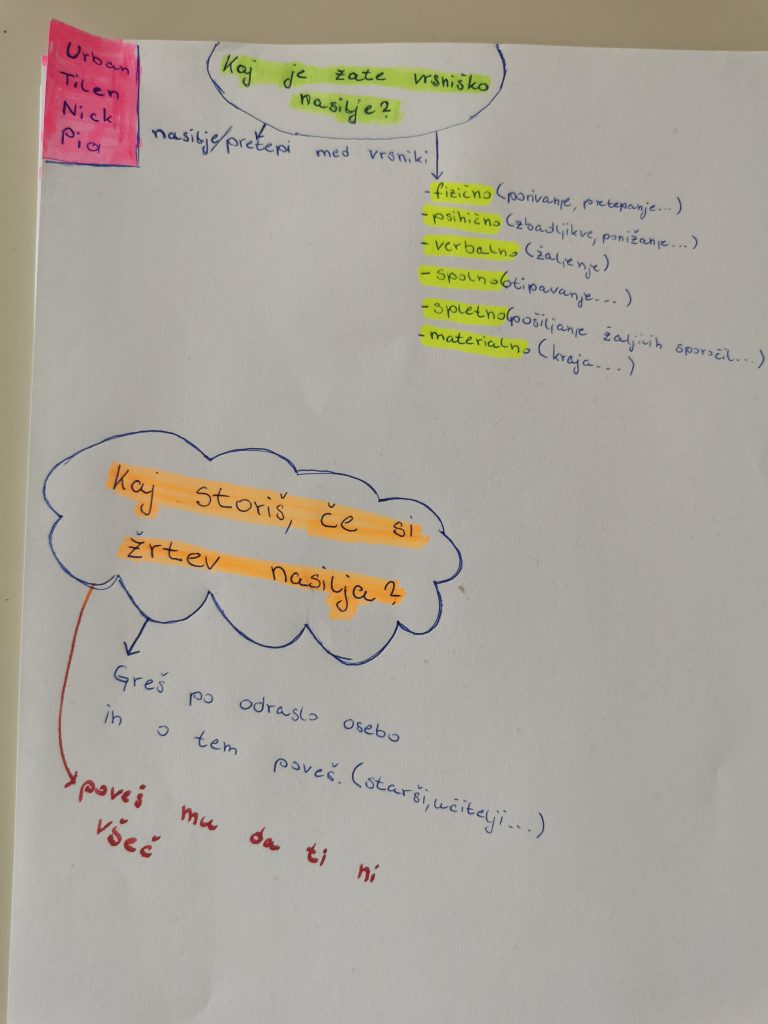 Urban
Tilen
Nick
Pia
Kaj je zate vrsniško
nasilje?
nasilje/pretepi med vrsniki
- fizično (porivanje, pretepanje...)
- psihično (zbadljikve, ponižanje...)
- verbalno (žaljenje)
- spolno (otipavanje...)
- spletno (pošiljanje žaljivih sporočil...)
- materialno (kraja....)
Kaj storiš, če si
žrtev nasilja?
Greš po odraslo osebo
in o tem poveš. (starši, učitelji...)
poveš mu da ti ni
všeč